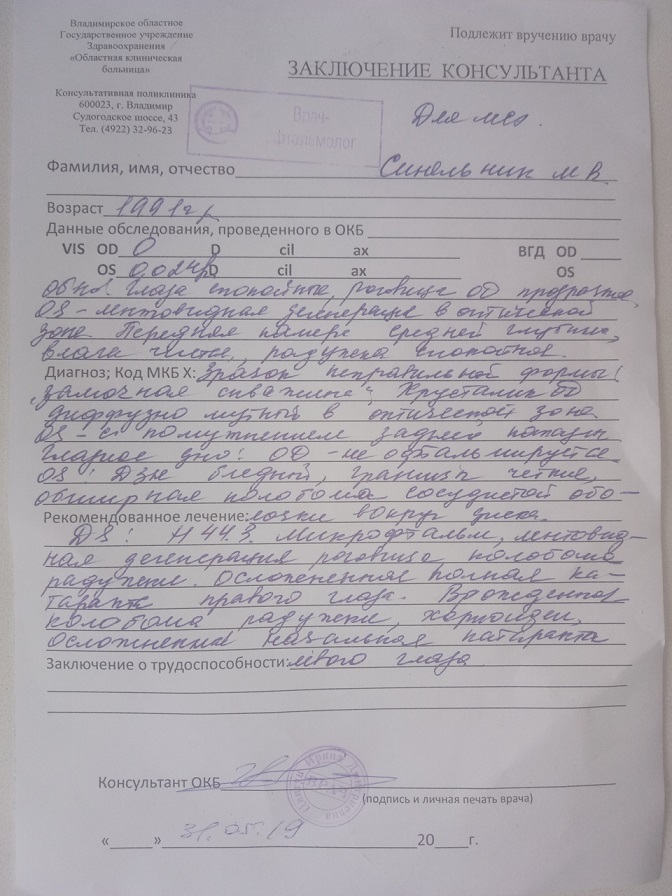 Владимирское областное
Государственное учреждение
Здравоохранения
«Областная клиническая
больница»
Консультативная поликлиника
600023, г. Владимир
Судогодское шоссе, 43
Тел. (4922) 32-96-23
Подлежит вручению врачу
ЗАКЛЮЧЕНИЕ КОНСУЛЬТАНТА
Врач-
офтальмолог
Для мсэ.
Фамилия, имя, отчество Синельник М В
Возраст 1991 г/р
Данные обследования, проведенного в ОКБ
VIS OD 0 D cil ax ВГД OD
OS 0,02 D cil ax OS
глаза спокойные, роговица OD прозрачная
OS – лентовидная дегенерация в оптической
зоне Передняя камера средней глубины,
влага чистая, радужка спокойная.
Диагноз; Код МКБ X: Зрачок неправильной формы
„замочная скважина“, Хрусталик OD
диффузно мутный в оптической зоне
OS – с помутнением задней капсулы
Глазное дно: OD – не офтальмируется
OS: Дзн бледный, границы четкие,
обширная колобома сосудистой обо-
Рекомендованное лечение: лочки вокруг диска.
DS: H 44.3. Микрофтальм, лентовид-
ная дегенерация роговицы колобома
радужки. Осложненная полная ка-
таракта правого глаза. Врожденная
колобома радужки, хориоидеи,
осложненная начальная катаракта
Заключение о трудоспособности: левого глаза
Консультант ОКБ
ВРАЧ
(подпись и личная печать врача)
« » 31.05.19 20 г.